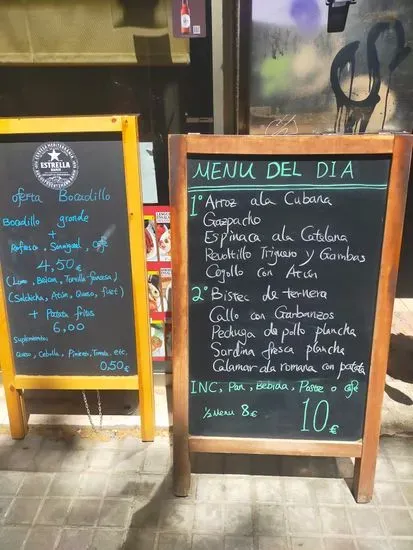 ESTRELLA
DAMM
oferta Bocadillo
Bocadillo grande
+
Refresco, Sumnigret, Café
4,50€
(Lomo, Beicon, Tortilla francesa)
(Salchicha, Atún, Queso, fuet)
+ Patata fritas
6,00
Suplementos
Queso, Cebolla, Pimiento, Tomate, etc.
0,50€
MENU DEL DIA
1º Arroz a la Cubana
Gazpacho
Espinaca a la Catalana
Revoltillo Triguero y Gambas
Cogollo con Atún
2º Bistec de ternera
Callo con Garbanzos
Pechuga de pollo plancha
Sardina fresca plancha
Calamar a la romana con patata
INC, Pan, Bebida, Postre o café
½ Menu 8€ 10€